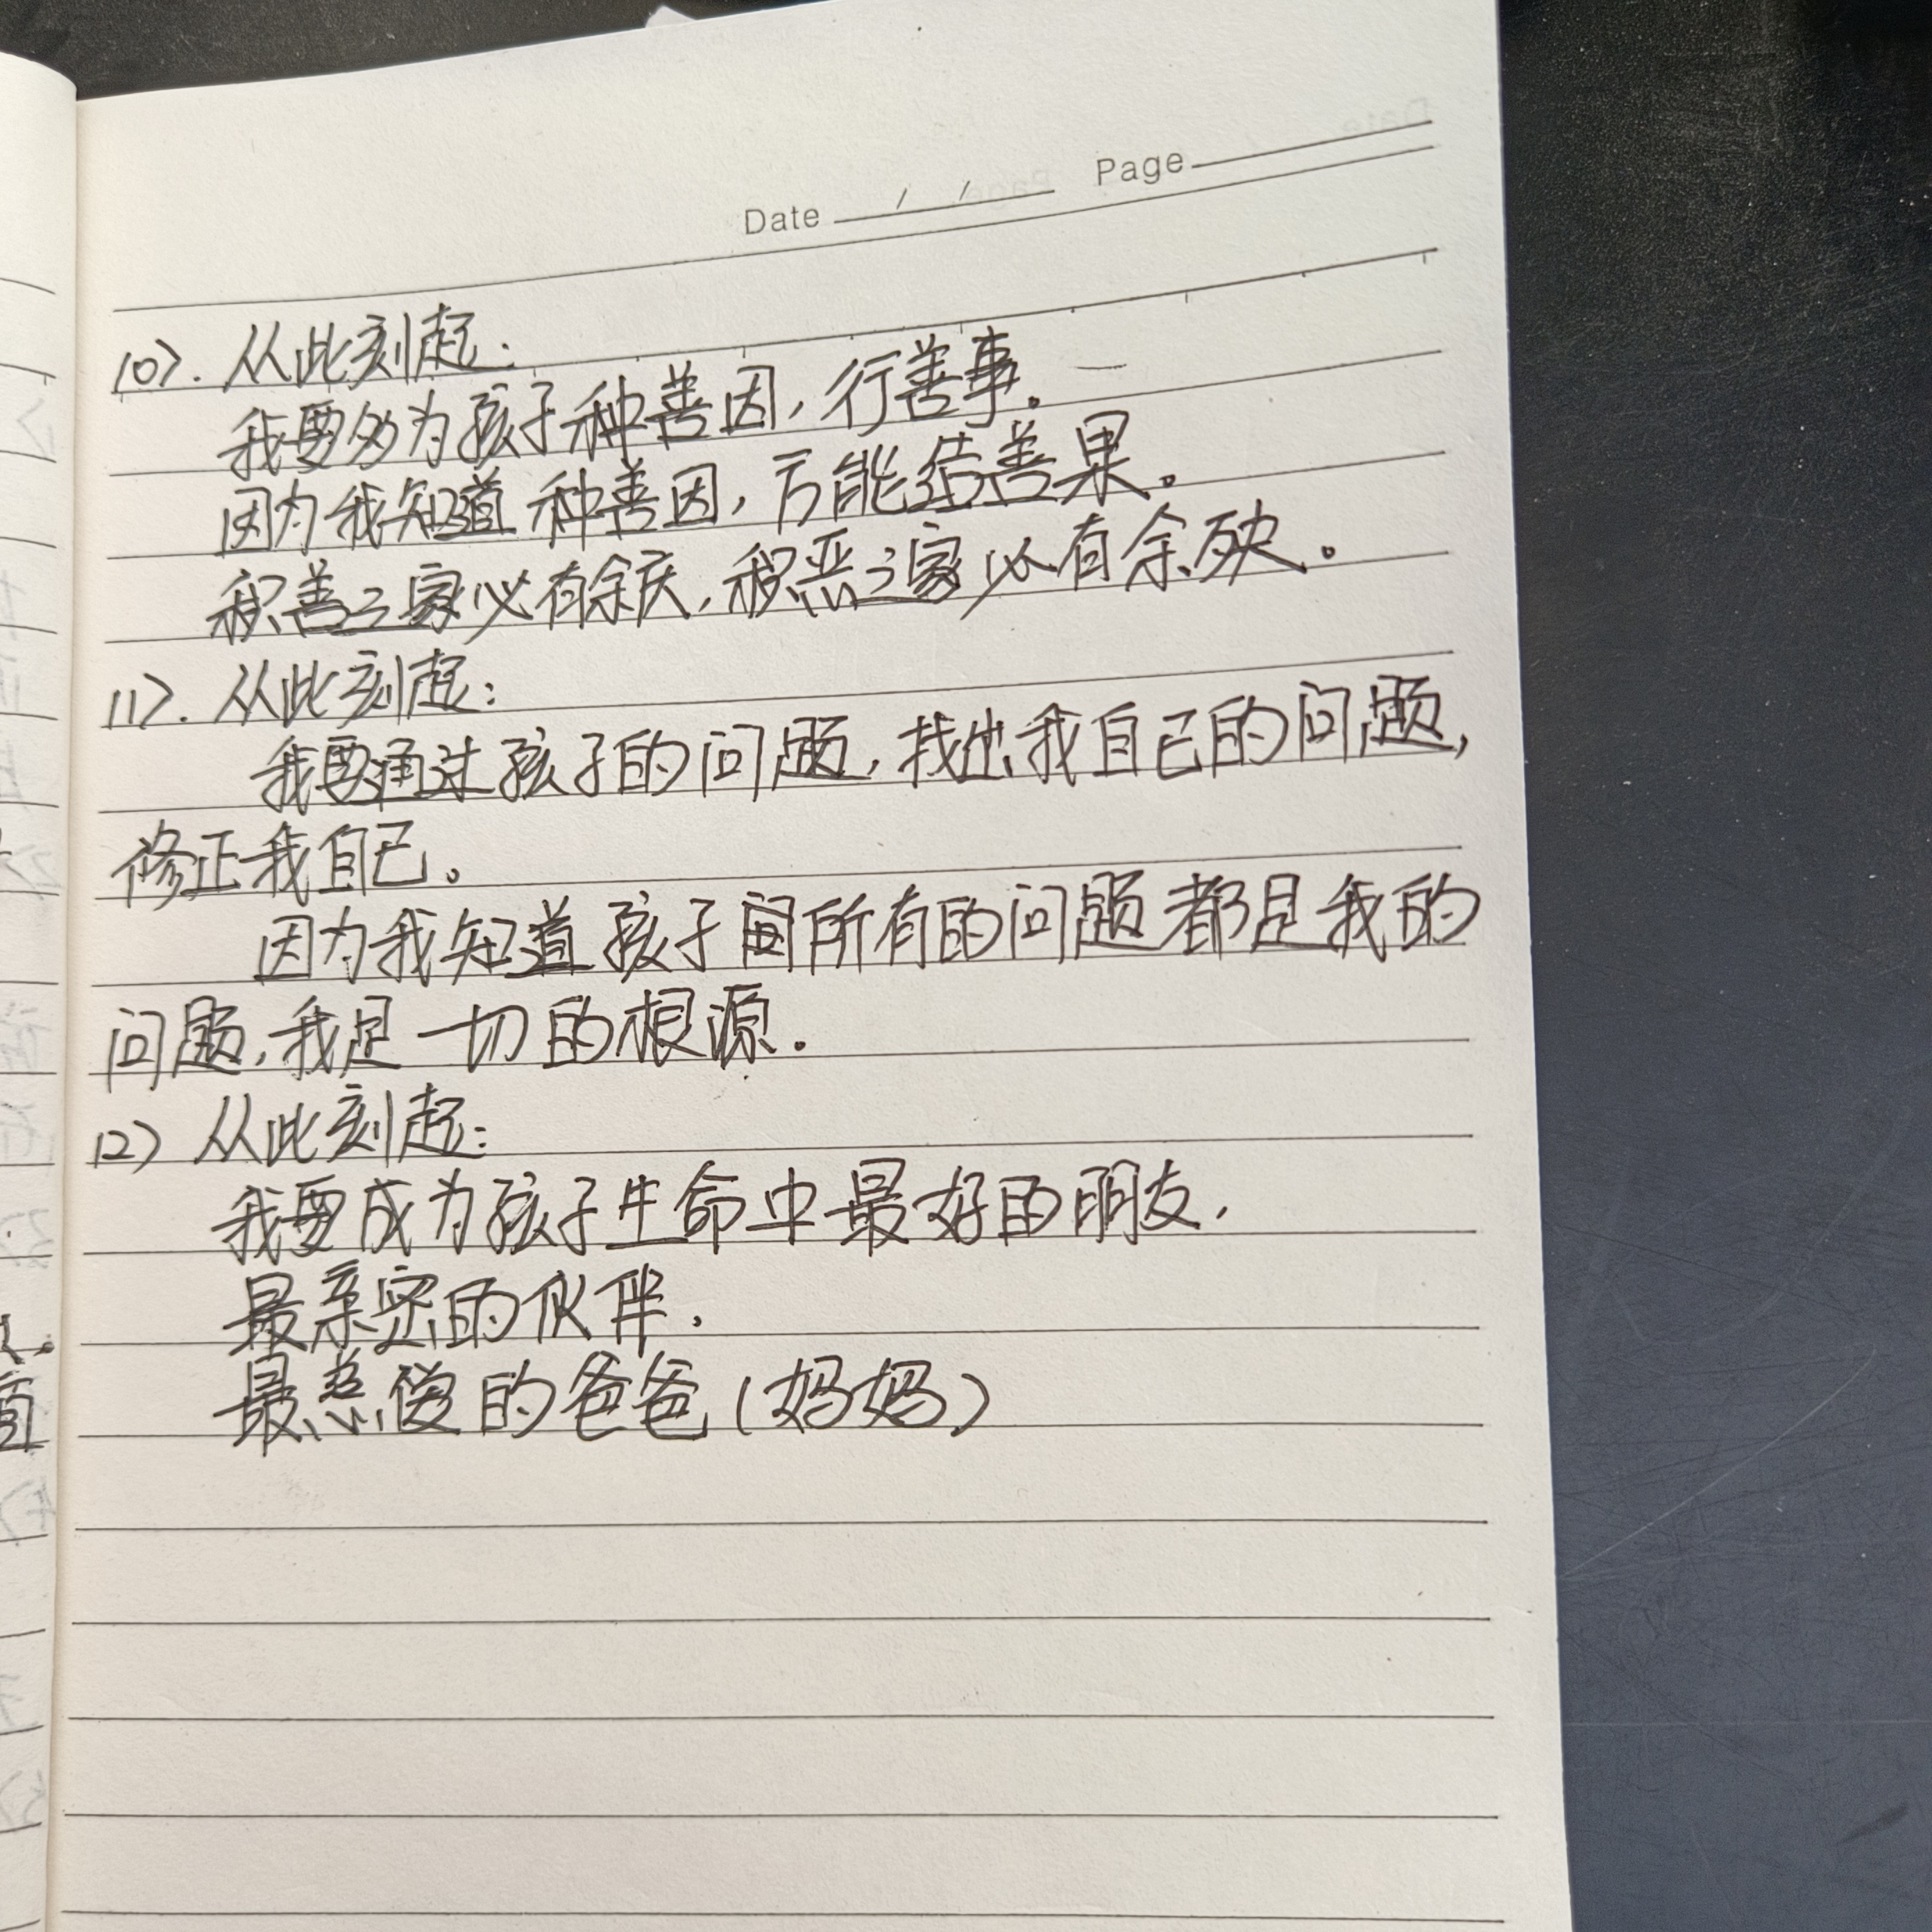 Date / / Page
10). 从此刻起:
我要多为孩子种善因, 行善事。
因为我知道种善因, 方能结善果。
积善之家必有余庆, 积恶之家必有余殃。
11). 从此刻起:
我要通过孩子的问题, 找出我自己的问题,
修正我自己。
因为我知道孩子所有的问题都是我的
问题, 我是一切的根源.
12) 从此刻起:
我要成为孩子生命中最好的朋友.
最亲密的伙伴.
最的爸爸(妈妈)